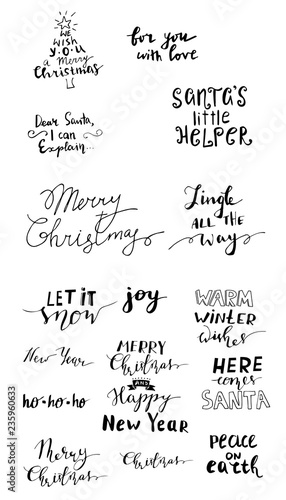 WE
WISH
YOU
a Merry
Christmas
for you
with love
Dear Santa,
I can
Explain...
SANTA'S
little
HELPER
Merry
Christmas
Jingle
ALL THE
Way
LET IT
snow
joy
WARM
WINTER
wishes
New Year
MERRY
Christmas
AND
Happy
New Year
HERE
comes
SANTA
ho-ho-ho
Merry
Christmas
Christmas
PEACE
ON
earth
Adobe Stock | #235960633